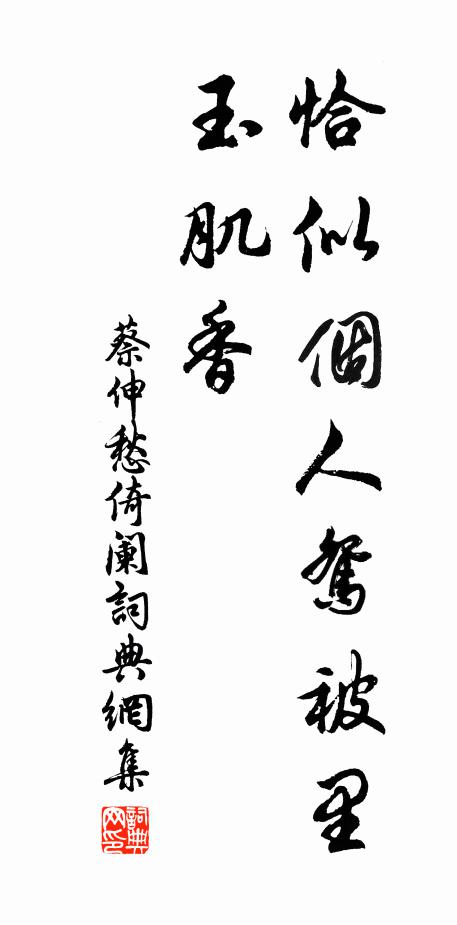 恰似個人鸳被里
玉肌香
蔡伸愁倚阑詞典網集
詞典网印